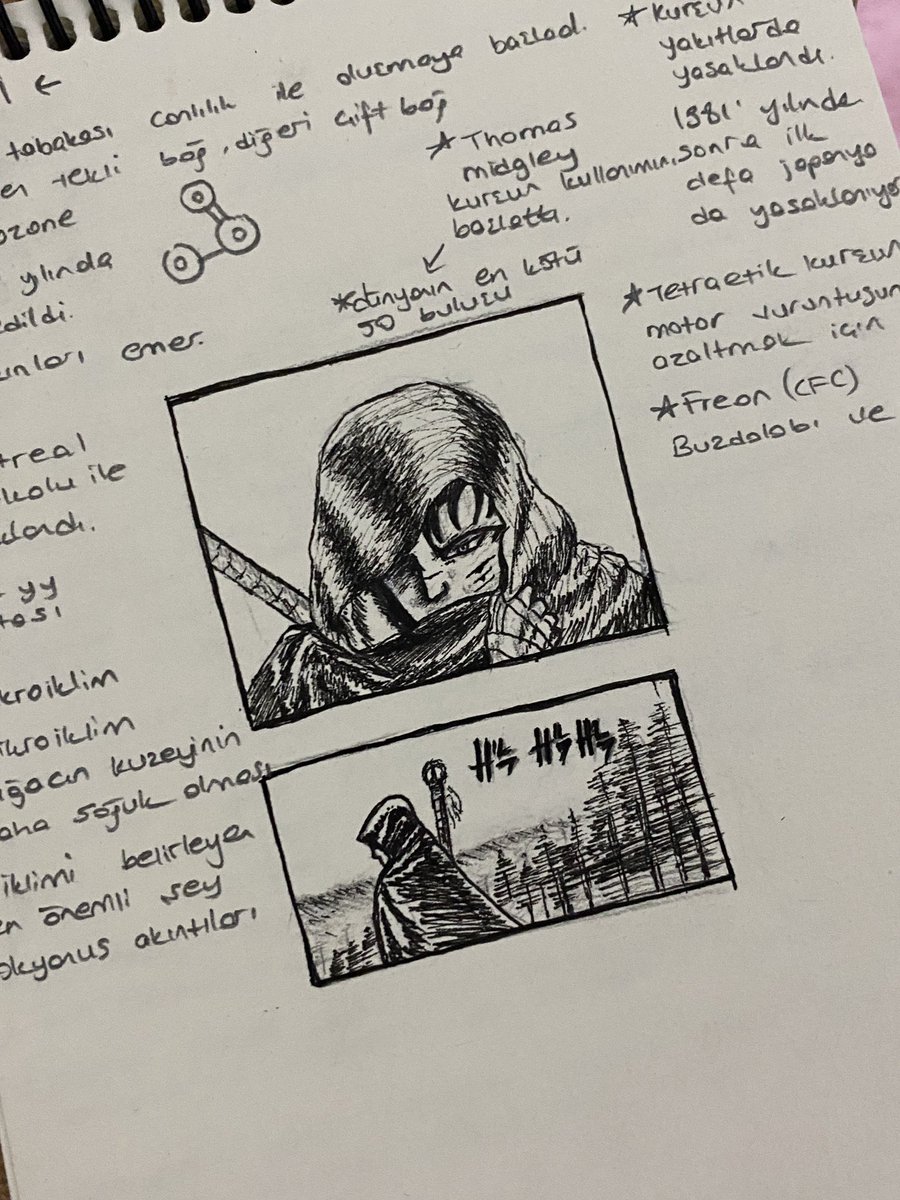 tabakası canlılık ile oluşmaya başladı.
tekli bağ, diğeri çift bağ
ozone
yılında
edildi.
emer.
treal
kolu ile
klandı.
yy
kroiklim
ikroiklim
ağacın kuzeyinin
aha soğuk olması
iklimi belirleyen
en önemli şey
okyanus akıntıları
★ Thomas
midgley
kurşun kullanımını
başlattı.
★dünyanın en kötü
50 buluşu
★ Kurşun
yakıtlarda
yasaklandı.
1981' yılında
sonra ilk
defa japonya
da yasaklanıyor
★ Tetraetik kurşun
motor vuruntusun
azaltmak için
★ Freon (CFC)
Buzdolabı ve